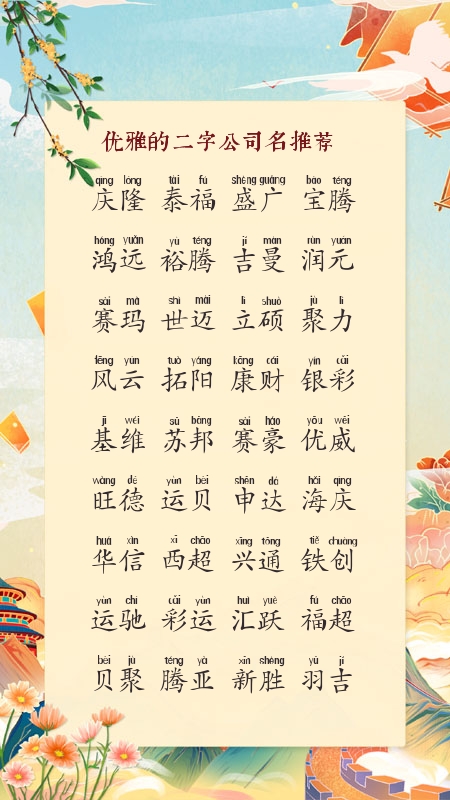 优雅的二字公司名推荐
qìng lóng tài fú shèng guǎng bǎo téng
庆隆 泰福 盛广 宝腾
hóng yuǎn yù téng jí màn rùn yuán
鸿远 裕腾 吉曼 润元
sài mǎ shì mài lì shuò jù lì
赛玛 世迈 立硕 聚力
fēng yún tuò yáng kāng cái yín cǎi
风云 拓阳 康财 银彩
jī wéi sū bāng sài háo yōu wēi
基维 苏邦 赛豪 优威
wàng dé yùn bèi shēn dá hǎi qìng
旺德 运贝 申达 海庆
huá xìn xī chāo xīng tōng tiě chuàng
华信 西超 兴通 铁创
yùn chí cǎi yùn huì yuè fú chāo
运驰 彩运 汇跃 福超
bèi jù téng yà xīn shèng yǔ jí
贝聚 腾亚 新胜 羽吉